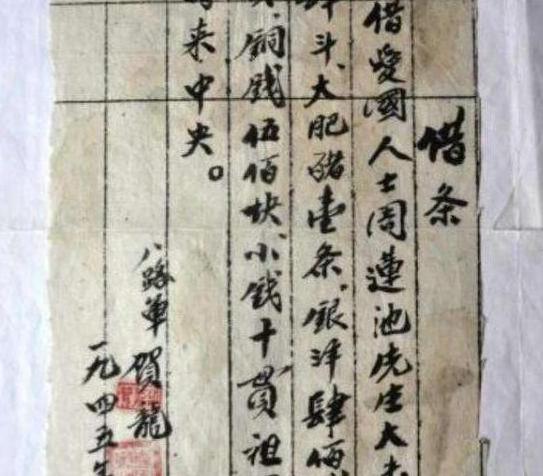 借条
借爱國人士周蓮池先生大
斗、大肥豬壹条。銀洋肆佰
銅钱伍佰块、小钱十貫祖
来中央。
八路軍 賀龍
一九四五年